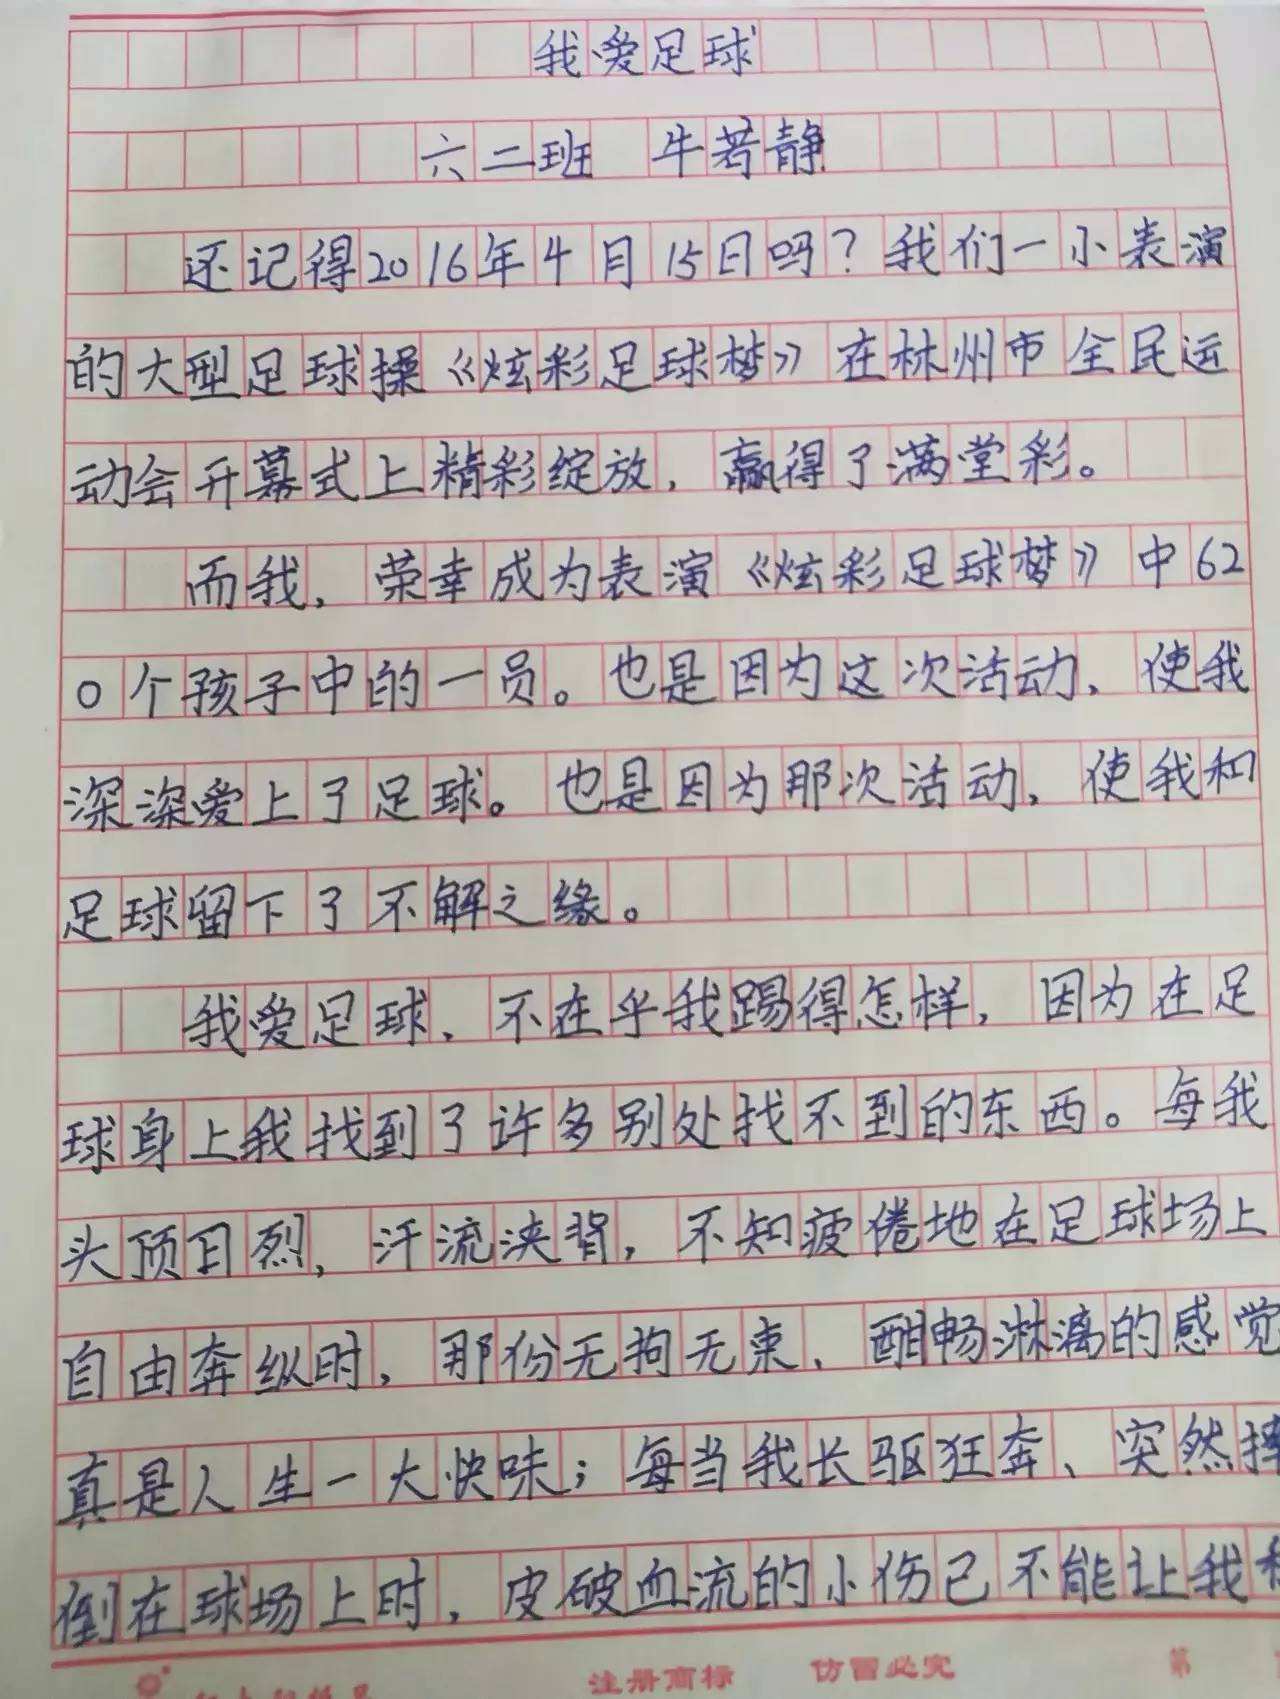 我爱足球
六二班 牛若静
还记得2016年4月15日吗?我们一小表演
的大型足球操《炫彩足球梦》在林州市全民运
动会开幕式上精彩绽放,赢得了满堂彩。
而我,荣幸成为表演《炫彩足球梦》中62
0个孩子中的一员。也是因为这次活动,使我
深深爱上了足球。也是因为那次活动,使我和
足球留下了不解之缘。
我爱足球,不在乎我踢得怎样,因为在足
球身上我找到了许多别处找不到的东西。每我
头顶日烈,汗流浃背,不知疲倦地在足球场上
自由奔纵时,那份无拘无束、酣畅淋漓的感觉
真是人生一大快味;每当我长驱狂奔、突然摔
倒在球场上时,皮破血流的小伤已不能让我
注册商标 仿冒必究 第